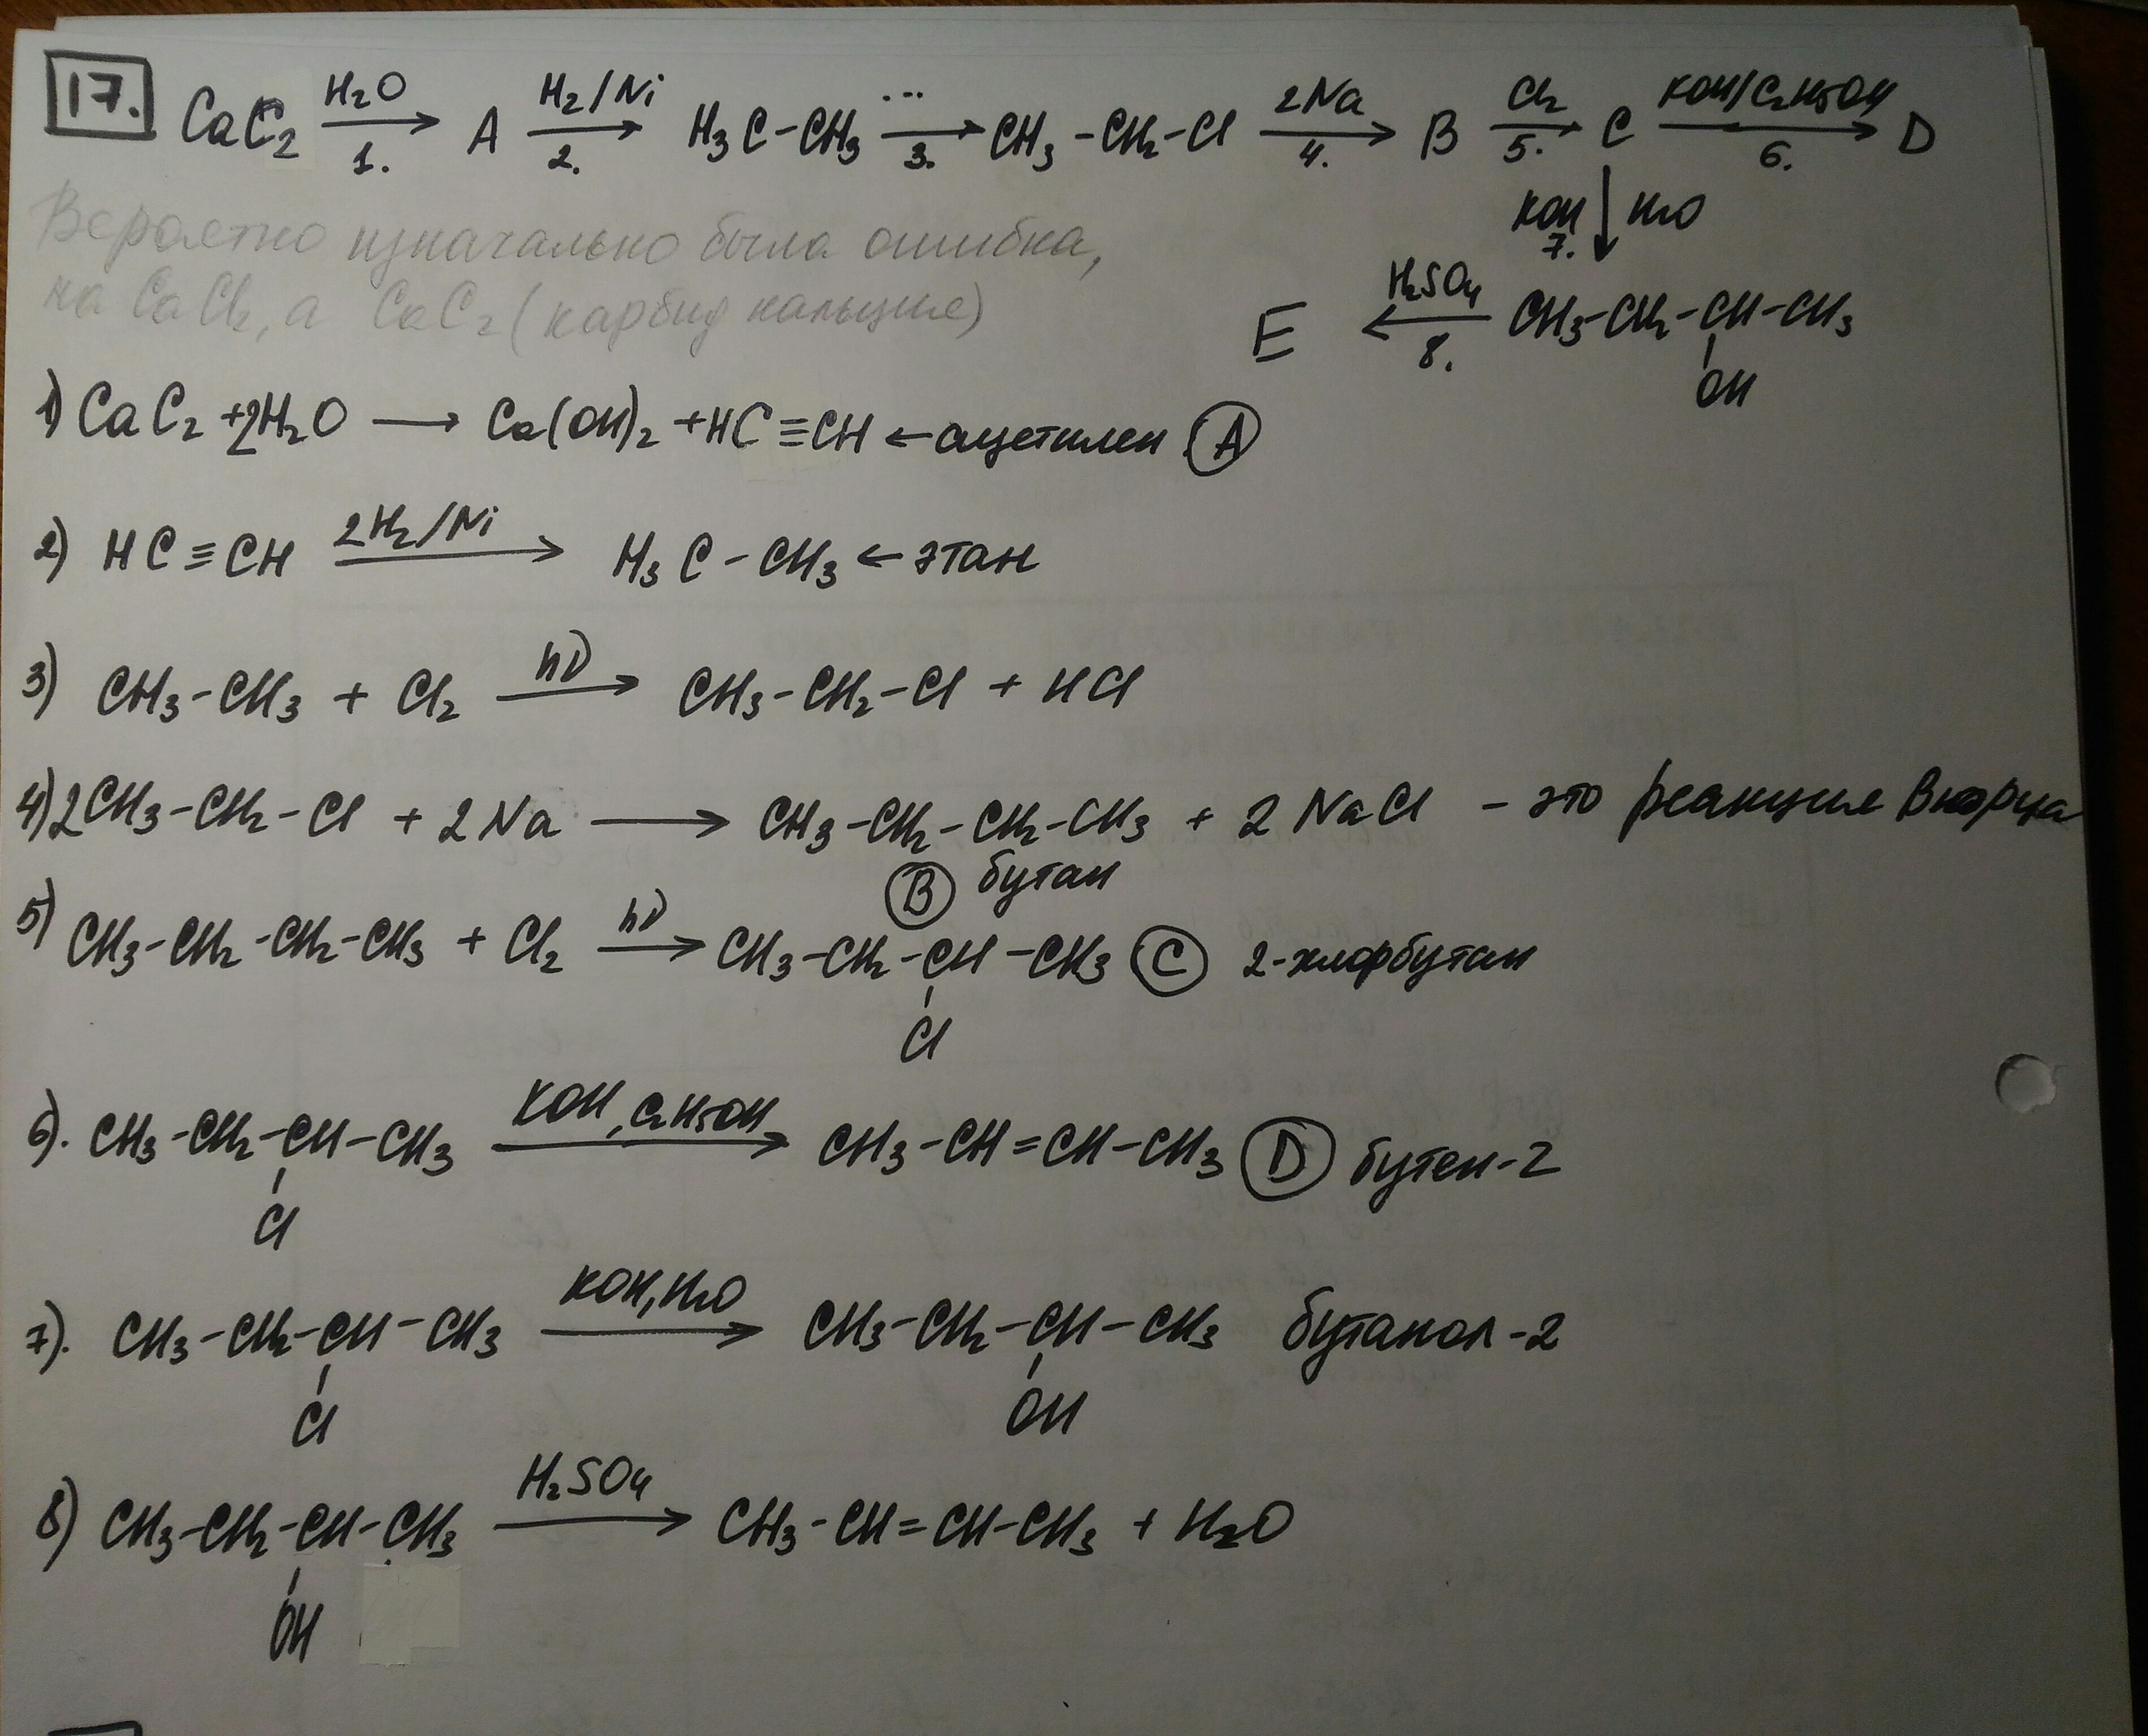 17. CaC₂ H₂O→1. A H₂/Ni→2. H₃C-CH₃ ...→3. CH₃-CH₂-Cl 2Na→4. B Cl₂→5. C KOH/C₂H₅OH→6. D
KOH 7.↓ H₂O
Вероятно изначально была ошибка,
на CaCl₂, а CaC₂ (карбид кальция)
E H₂SO₄←8. CH₃-CH₂-CH-CH₃
OH
1) CaC₂ + 2H₂O → Ca(OH)₂ + HC≡CH ← ацетилен A
2) HC≡CH 2H₂/Ni→ H₃C-CH₃ ← этан
3) CH₃-CH₃ + Cl₂ hν→ CH₃-CH₂-Cl + HCl
4) 2CH₃-CH₂-Cl + 2Na → CH₃-CH₂-CH₂-CH₃ + 2NaCl - это реакция Вюрца
B бутан
5) CH₃-CH₂-CH₂-CH₃ + Cl₂ hν→ CH₃-CH₂-CH-CH₃ C 2-хлорбутан
Cl
6). CH₃-CH₂-CH-CH₃ KOH, C₂H₅OH→ CH₃-CH=CH-CH₃ D бутен-2
Cl
7). CH₃-CH₂-CH-CH₃ KOH, H₂O→ CH₃-CH₂-CH-CH₃ бутанол-2
Cl OH
8) CH₃-CH₂-CH-CH₃ H₂SO₄→ CH₃-CH=CH-CH₃ + H₂O
OH